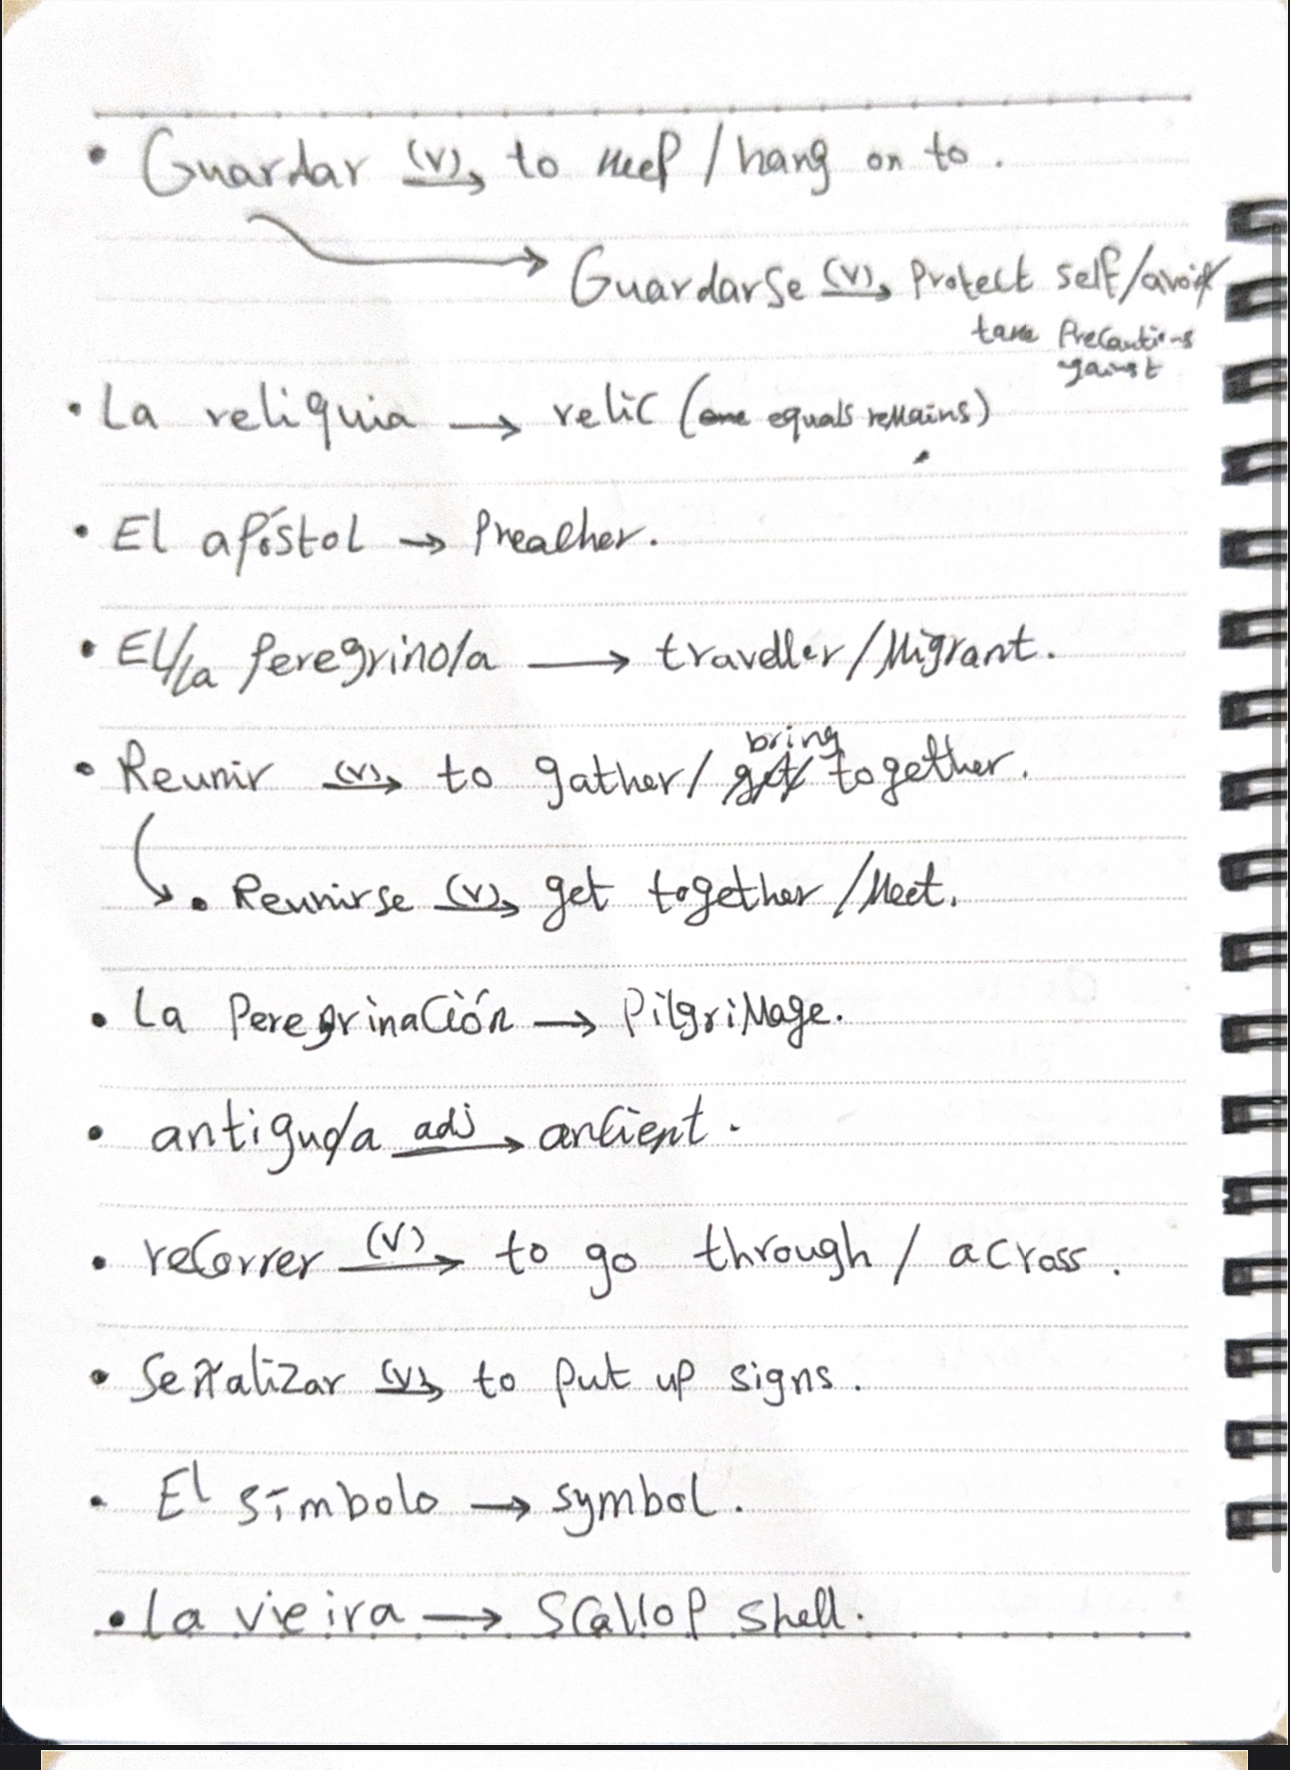 • Guardar (v)→ to keep / hang on to.
→ Guardarse (v)→ Protect self/avoid
take Precautions
against
• La reliquia → relic (one equals remains)
• El apóstol → Preacher.
• El/La Peregrino/a → traveller/Migrant.
bring
• Reunir (v)→ to gather/ get together.
• Reunirse (v)→ get together /Meet.
• La Peregrinación → PilgriMage.
• antiguo/a adj→ ancient.
• recorrer (v)→ to go through / across.
• Señalizar (v)→ to put up signs.
• El símbolo → symbol.
• La vieira → Scallop shell.